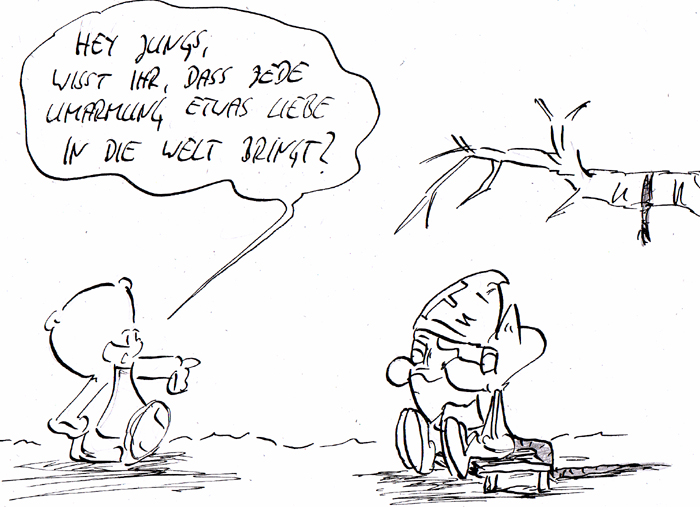 HEY JUNGS,
WISST IHR, DASS JEDE
UMARMUNG ETWAS LIEBE
IN DIE WELT BRINGT?